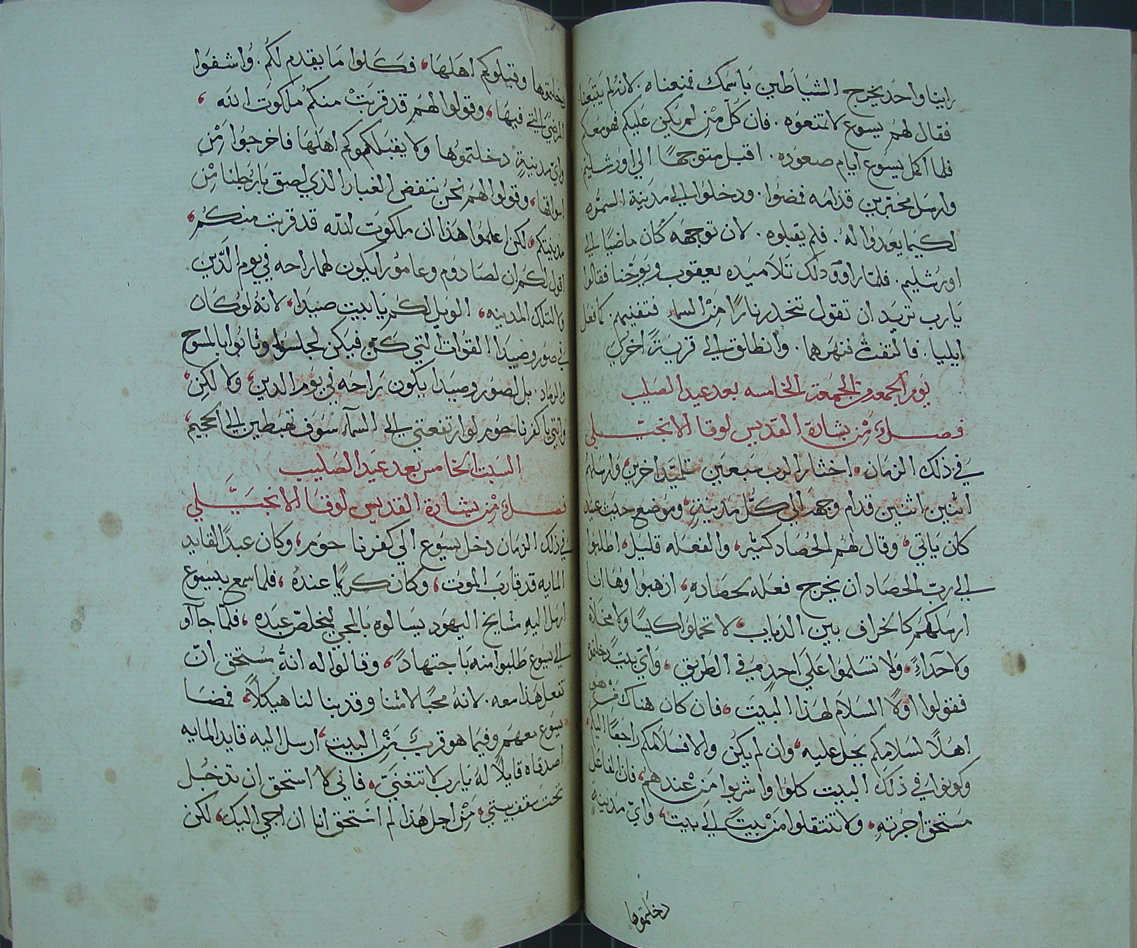 راينا واحد يخرج الشياطين باسمك فمنعناه. لانه لم يتبعنا
فقال لهم يسوع لا تمنعوه. فان كل من لم يكن عليكم فهو معكم
فلما اكمل يسوع ايام صعوده. اقبل متوجهًا الي اورشليم
وارسل مخبرين قدامه فمضوا. ودخلوا الي مدينة السمره
لكيما يعدوا له. فلم يقبلوه. لان توجهه كان ماضيًا الي
اورشليم. فلما راوو ذلك تلاميذه يعقوب ويوحنا فقالوا
يارب تريد ان تقول تنحدر نارًا من السماء فتفنيهم. كما فعل
ايليا. فالتفت فنهرهما. وانطلق الي قرية اخري
يوم الجمعه من الجمعة الخامسه بعد عيد الصليب
فصل من بشارة القديس لوقا الانجيلي
في ذلك الزمان. اختار الرب سبعين تلميذ اخرين. وارسلهم
اثنين اثنين قدام وجهه الي كل مدينة. وموضع حيث عند
كان ياتي. وقال لهم الحصاد كثير. والفعله قليل. اطلبوا
الي رب الحصاد ان يخرج فعله لحصاده. اذهبوا وها انا
ارسلكم كالخراف بين الدياب. لا تحملوا كيسًا ولا مخلاة
ولا حذاءً. ولا تسلموا علي احدٍ في الطريق. واي بيت دخلتموه
فقولوا اولًا السلام لهذا البيت. فان كان هناك من هو
اهلًا لسلامكم يحل عليه. وان لم يكن ولا فسلامكم راجعًا اليكم
وكونوا في ذلك البيت كلوا واشربوا من عندهم. فان الفاعل
مستحق اجرته. ولا تنتقلوا من بيت الي بيت. واي مدينة
دخلتموها
دخلتموها وقبلوكم اهلها. فكلوا ما يقدم لكم. واشفوا
المرضي التي فيها. وقولوا لهم قد قربت منكم ملكوت الله.
واي مدينة دخلتموها ولا يقبلوكم اهلها فاخرجوا من
اسواقها. وقولوا لهم نحن ننفض الغبار الذي لصق بارجلنا من
مدينتكم. لكن اعلموا هذا ان ملكوت الله قد قربت منكم.
اقول لكم ان لصادوم وعامورا يكون لهما راحه في يوم الدين.
ولا لتلك المدينه. الويل لكم يا بيت صيدا. لانه لو كان
في صور وصيدا القوات التي كن فيكن لجلسوا وتابوا بالمسوح
والرماد. بل لصور وصيدا يكون راحه في يوم الدين. ولا لكن
وانتي يا كفرناحوم لو ارتفعتي الي السماء سوف تهبطين الي الجحيم.
السبت الخامس بعد عيد الصليب
فصل من بشارة القديس لوقا الانجيلي
في ذلك الزمان دخل يسوع الي كفرناحوم. وكان عبد القايد
المايه قد قارب الموت. وكان كريمًا عنده. فلما سمع بيسوع
ارسل اليه مشايخ اليهود يسالوه بالمجي ليخلص عبده. فلما جاآو
الي يسوع طلبوا منه باجتهادً. وقالوا له انه مستحق ان
تفعل هذا معه. لانه محبًا لامتنا وقد بنا لنا هيكلًا. فمضا
يسوع معهم وفيما هو قريب من البيت. ارسل اليه قايد المايه
اصدقاه قايلًا له يارب لا تتعني. فاني لا استحق ان تدخل
تحت سقف بيتي. من اجل هذا لم استحق انا ان اجي اليك. لكن